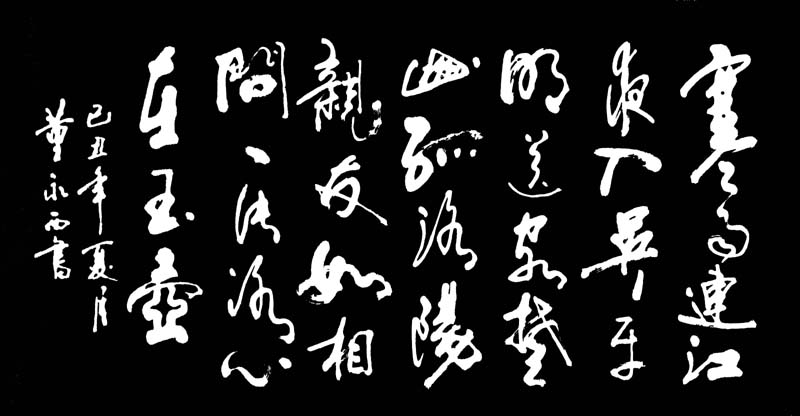 寒雨連江
夜入吳平
明送客楚
山孤洛陽
親友如相
問一片冰心
在玉壺
己丑年夏月
董永西書